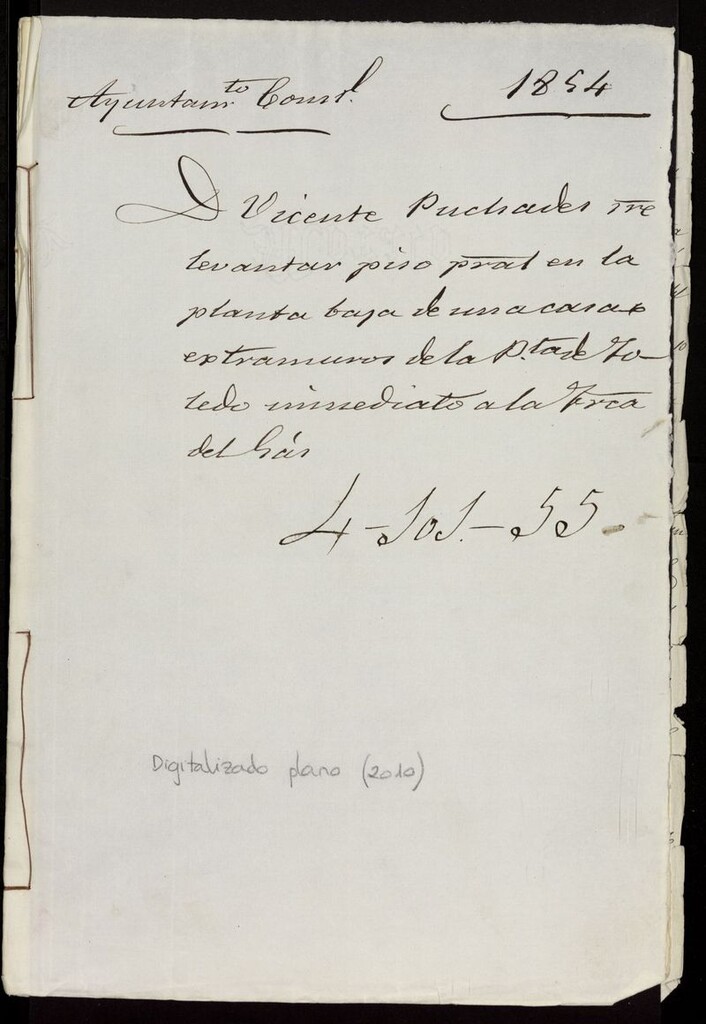 Ayuntam.to Consl.
1854
D Vicente Puchades sre
levantar piso pral en la
planta baja de una casa
extramuros de la P.ta de To-
ledo inmediato a la Frca
del Gás
4-101-55.
Digitalizado plano (2010)